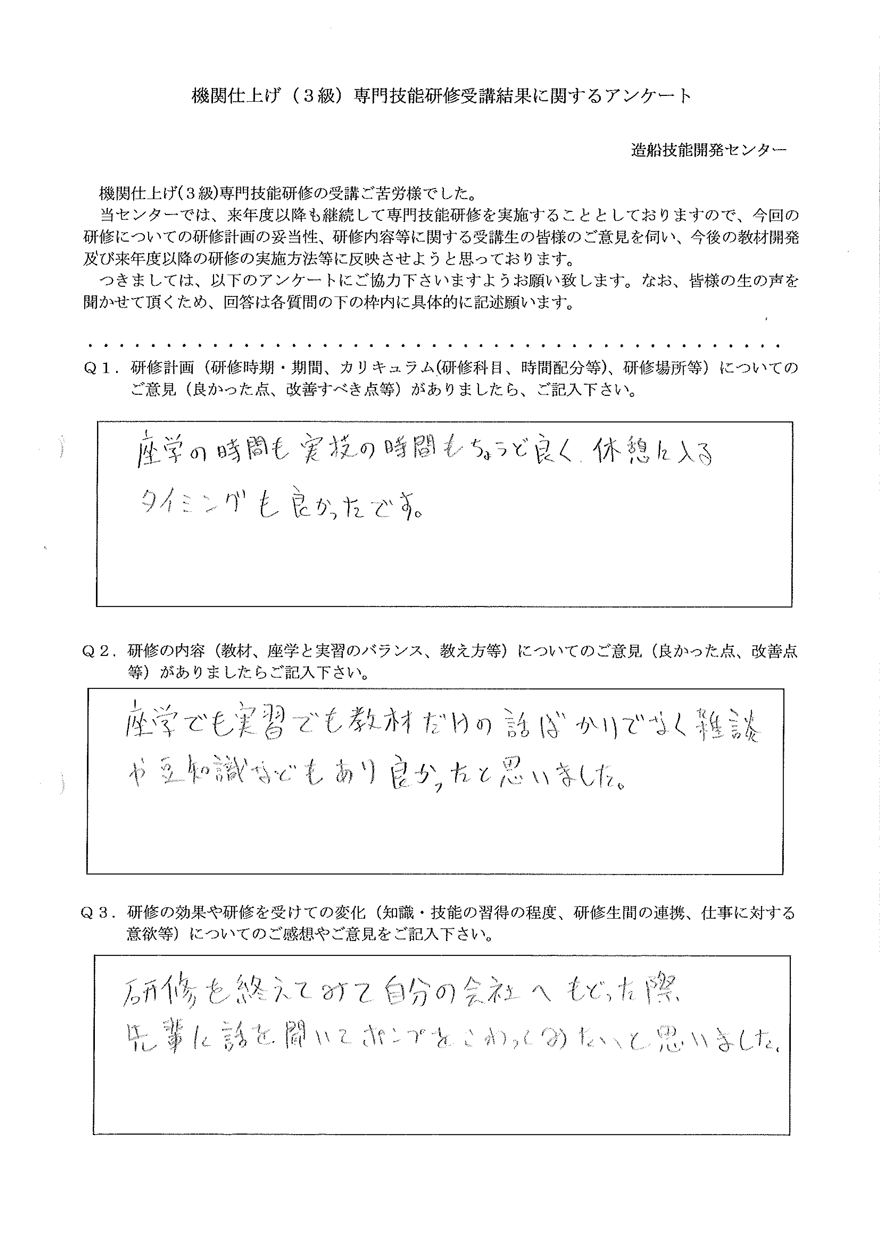 機関仕上げ（３級）専門技能研修受講結果に関するアンケート
造船技能開発センター
機関仕上げ(３級)専門技能研修の受講ご苦労様でした。
当センターでは、来年度以降も継続して専門技能研修を実施することとしておりますので、今回の
研修についての研修計画の妥当性、研修内容等に関する受講生の皆様のご意見を伺い、今後の教材開発
及び来年度以降の研修の実施方法等に反映させようと思っております。
つきましては、以下のアンケートにご協力下さいますようお願い致します。なお、皆様の生の声を
聞かせて頂くため、回答は各質問の下の枠内に具体的に記述願います。
・・・・・・・・・・・・・・・・・・・・・・・・・・・・・・・・・・・・・・・・・・・・・
Ｑ１．研修計画（研修時期・期間、カリキュラム(研修科目、時間配分等)、研修場所等）についての
ご意見（良かった点、改善すべき点等）がありましたら、ご記入下さい。
座学の時間も実技の時間もちょうど良く、休憩に入る
タイミングも良かったです。
Ｑ２．研修の内容（教材、座学と実習のバランス、教え方等）についてのご意見（良かった点、改善点
等）がありましたらご記入下さい。
座学でも実習でも教材だけの話ばかりでなく雑談
や豆知識などもあり良かったと思いました。
Ｑ３．研修の効果や研修を受けての変化（知識・技能の習得の程度、研修生間の連携、仕事に対する
意欲等）についてのご感想やご意見をご記入下さい。
研修を終えてみて自分の会社へもどった際、
先輩に話を聞いてポンプを みたいと思いました。